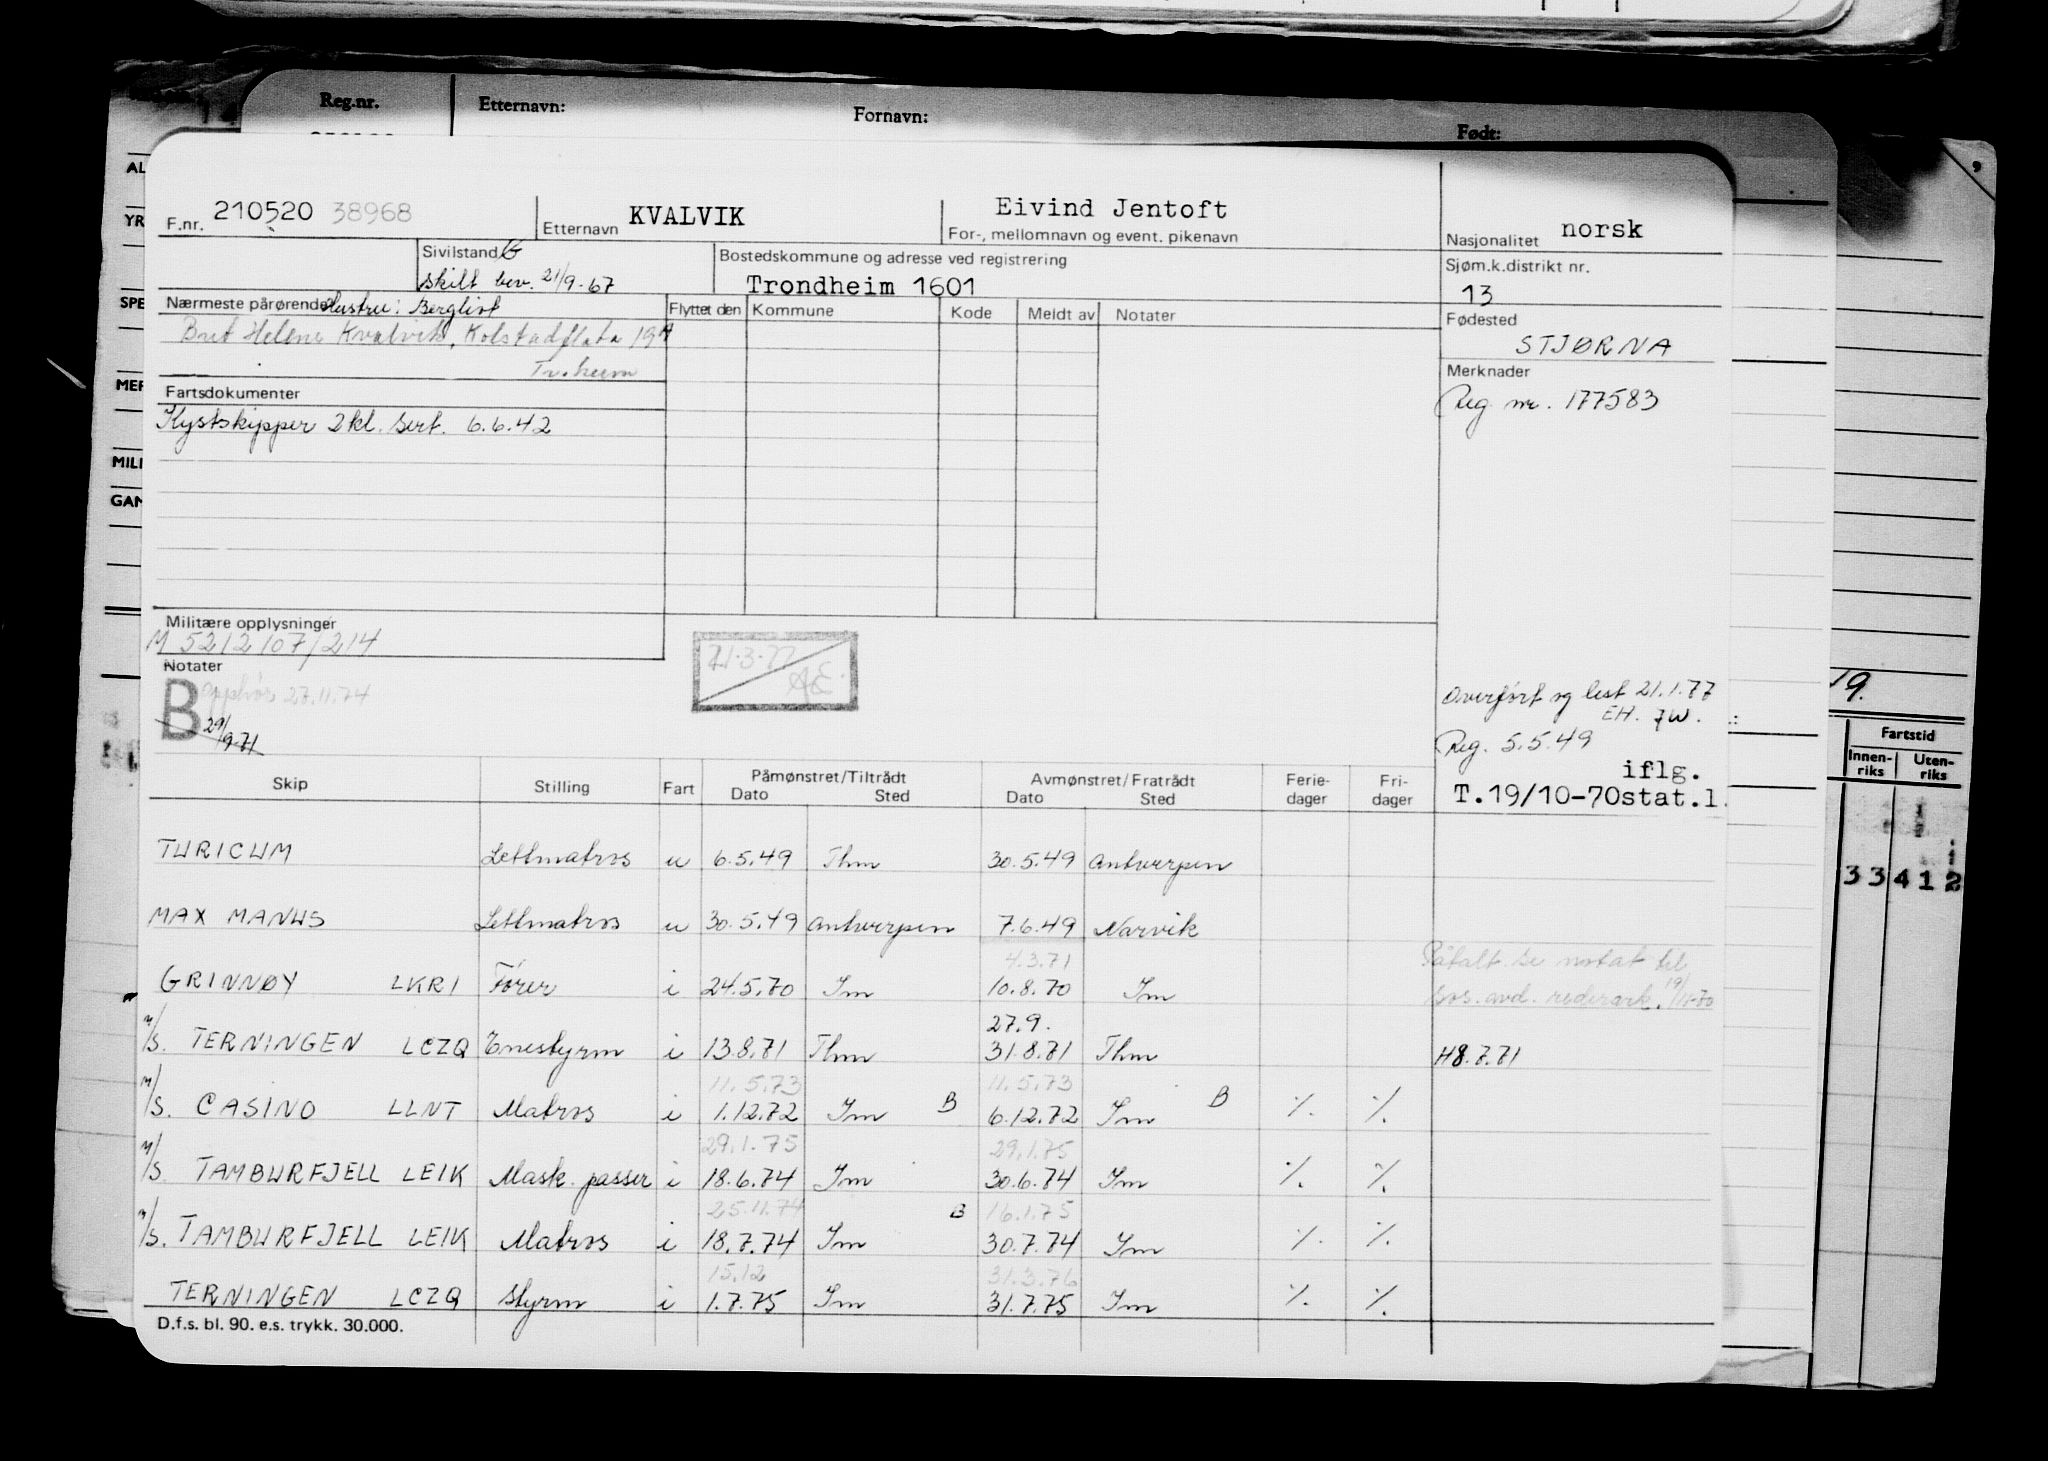 Reg.nr. Etternavn: Fornavn: Født:
F.nr. 210520 38968 Etternavn KVALVIK Eivind Jentoft For-, mellomnavn og event. pikenavn Nasjonalitet norsk
Sivilstand G
skilt bev. 21/9-67
Bostedskommune og adresse ved registrering
Trondheim 1601
Sjøm.k.distrikt nr.
13
Nærmeste pårørende Hustru: Bergliot
Brit Helene Kvalvik, Kolstadflata 19A
Tr.heim
Flyttet den Kommune Kode Meldt av Notater
Fødested
STJØRNA
Merknader
Reg nr. 177583
Fartsdokumenter
Kystskipper 2kl. sert. 6.6.42
Militære opplysninger
M 5212107/214
Notater
B opphør 27.11.74
29/9-71
21.3.77
AE
Overført og lest 21.1.77
EH. 7W.
Reg. 5.5.49
iflg.
T.19/10-70stat.1.
Skip Stilling Fart Påmønstret/Tiltrådt Dato Sted Avmønstret/Fratrådt Dato Sted Ferie-dager Fri-dager
TURICUM Lettmatros u 6.5.49 Thm 30.5.49 Antwerpen
MAX MANUS Lettmatros u 30.5.49 Antwerpen 7.6.49 Narvik
4.3.71
GRINNØY LKRI Fører i 24.5.70 Im 10.8.70 Im
Påtalt. se notat til
sos. avd. rederark. 19/11-70
27.9.
M/S. TERNINGEN LCZQ Enestyrm i 13.8.71 Thm 31.8.71 Thm H8.7.71
11.5.73 11.5.73
M/S. CASINO LLNT Matros i 1.12.72 Im B 6.12.72 Im B % %
29.1.75 29.1.75
M/S. TAMBURFJELL LEIK Mask. passer i 18.6.74 Im 30.6.74 Im % %
25.11.74 B 16.1.75
M/S. TAMBURFJELL LEIK Matros i 18.7.74 Im 30.7.74 Im % %
15.12 31.3.76
TERNINGEN LCZQ Styrm i 1.7.75 Im 31.7.75 Im % %
D.f.s. bl. 90. e.s. trykk. 30.000.
AL
YR
SPE
MER
MILI
GAN
19.
Fartstid
Innen-riks Uten-riks
33412